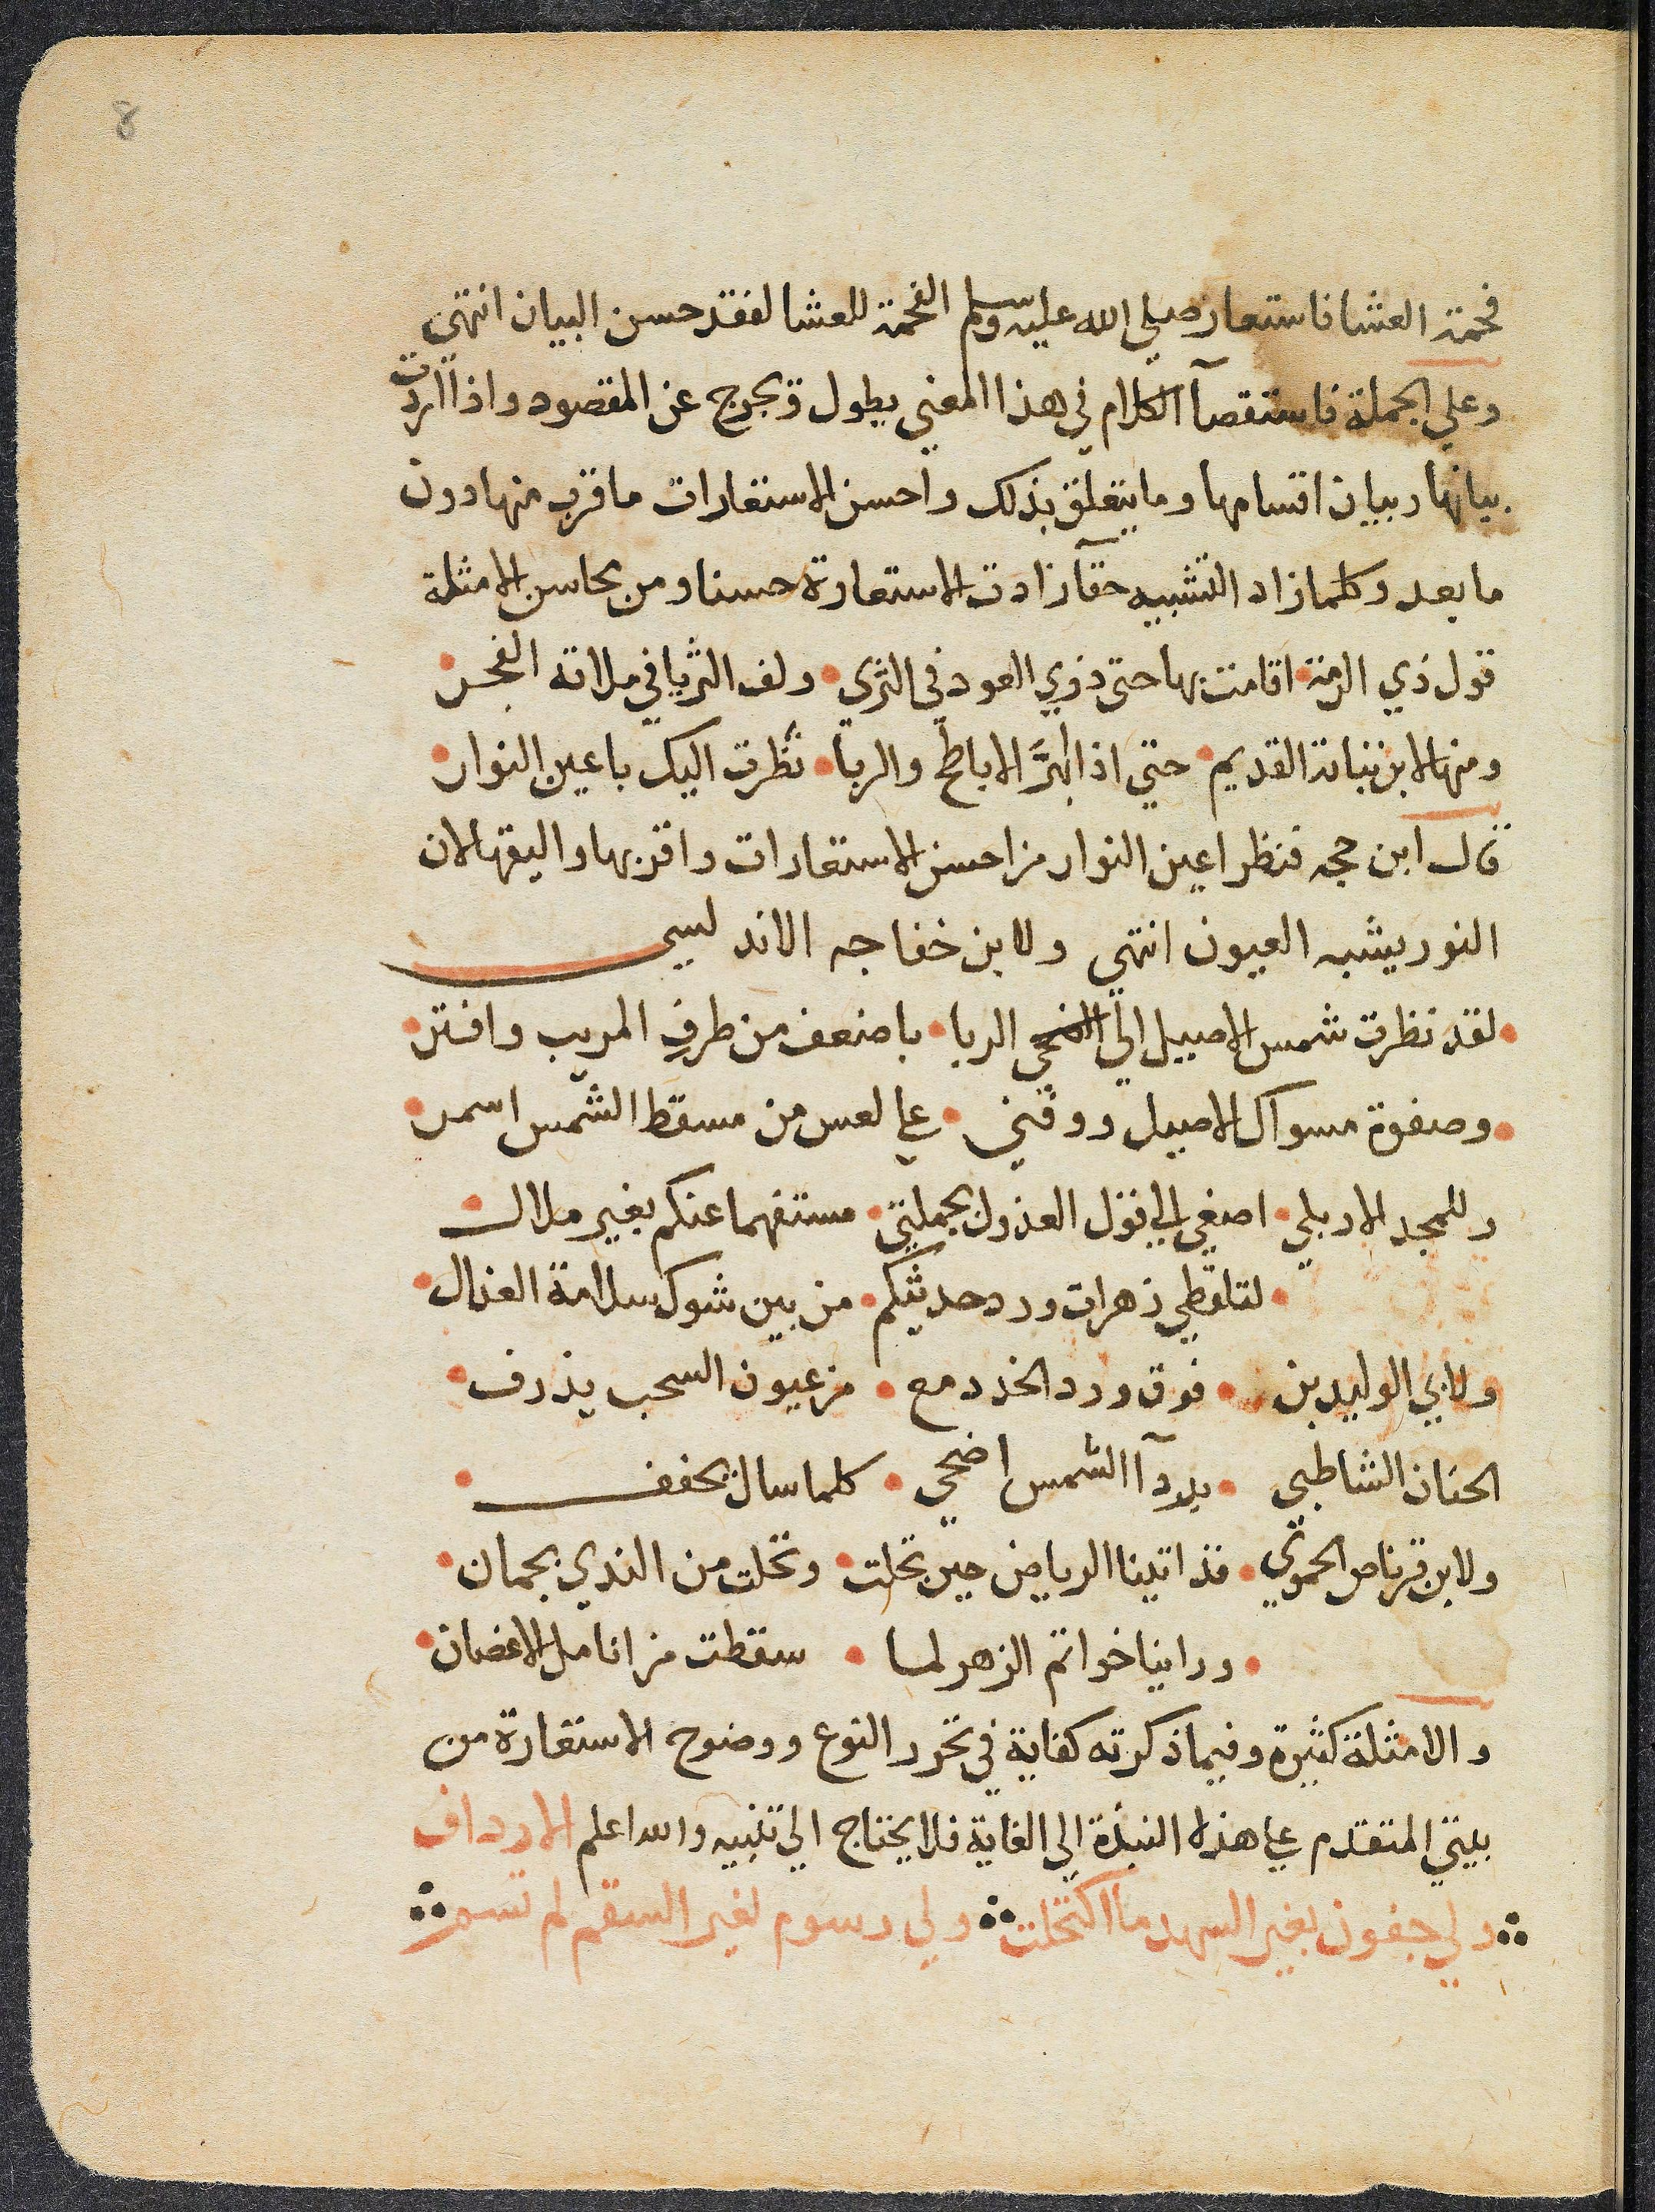 8
فحمة العشا فاستعار صلي الله عليه وسلم الفحمة للعشا لفقد حسن البيان انتهى
وعلي الجملة فاستقصآ الكلام في هذا المعني يطول ويخرج عن المقصود واذا اردت
بيانها وبيان اقسامها وما يتعلق بذلك واحسن الاستعارات ما قرب منها دون
ما بعد وكلما زاد التشبيه حقآ زادت الاستعارة حسنا ومن محاسن الامثلة
قول ذي الرمة اقامت بها حتى ذوي العود في الثرى • ولف الثريا في ملاته الفجر
ومنها لابن نباتة القديم • حتي اذا بهرَّ الاباطح والربا • نظرت اليك باعين النوار
قال ابن حجه فنظر اعين النوار من احسن الاستعارات واقربها واليقها لان
النور يشبه العيون انتهي ولابن خفاجه الاندلسي
• لقد نظرت شمس الاصيل الي الربا • باضعف من طرف المريب وافتر •
• وصفوة مسواك الاصيل ووقني • علي لعس من مسقط الشمس اسمر •
وللمجد الاربلي • اصغي الي قول العذول بجملتي • مستفهما عنكم بغير ملال •
• لتلقطي زهرات ورد حديثكم • من بين شوك سلامة العذال •
ولابي الوليد بن • فوق ورد الخد دمع • من عيون السحب يذرف •
الحنان الشاطبي • بردآ الشمس اضحي • كلما سال يجفف •
ولابن قرناص الحموي • قد اتينا الرياض حين تجلت • وتحلت من الندي بجمان •
• وراينا خواتم الزهر لما • سقطت من انامل الاغصان •
والامثلة كثيرة وفيما ذكرته كفاية في تحرر النوع ووضوح الاستعارة من
بيتي المتقدم علي هذه النبذة الي الغاية فلا يحتاج الي تنبيه والله اعلم الارداف
ولي جفون بغير السهد ما اكتحلت ولي رسوم لغير السقم لم تسم